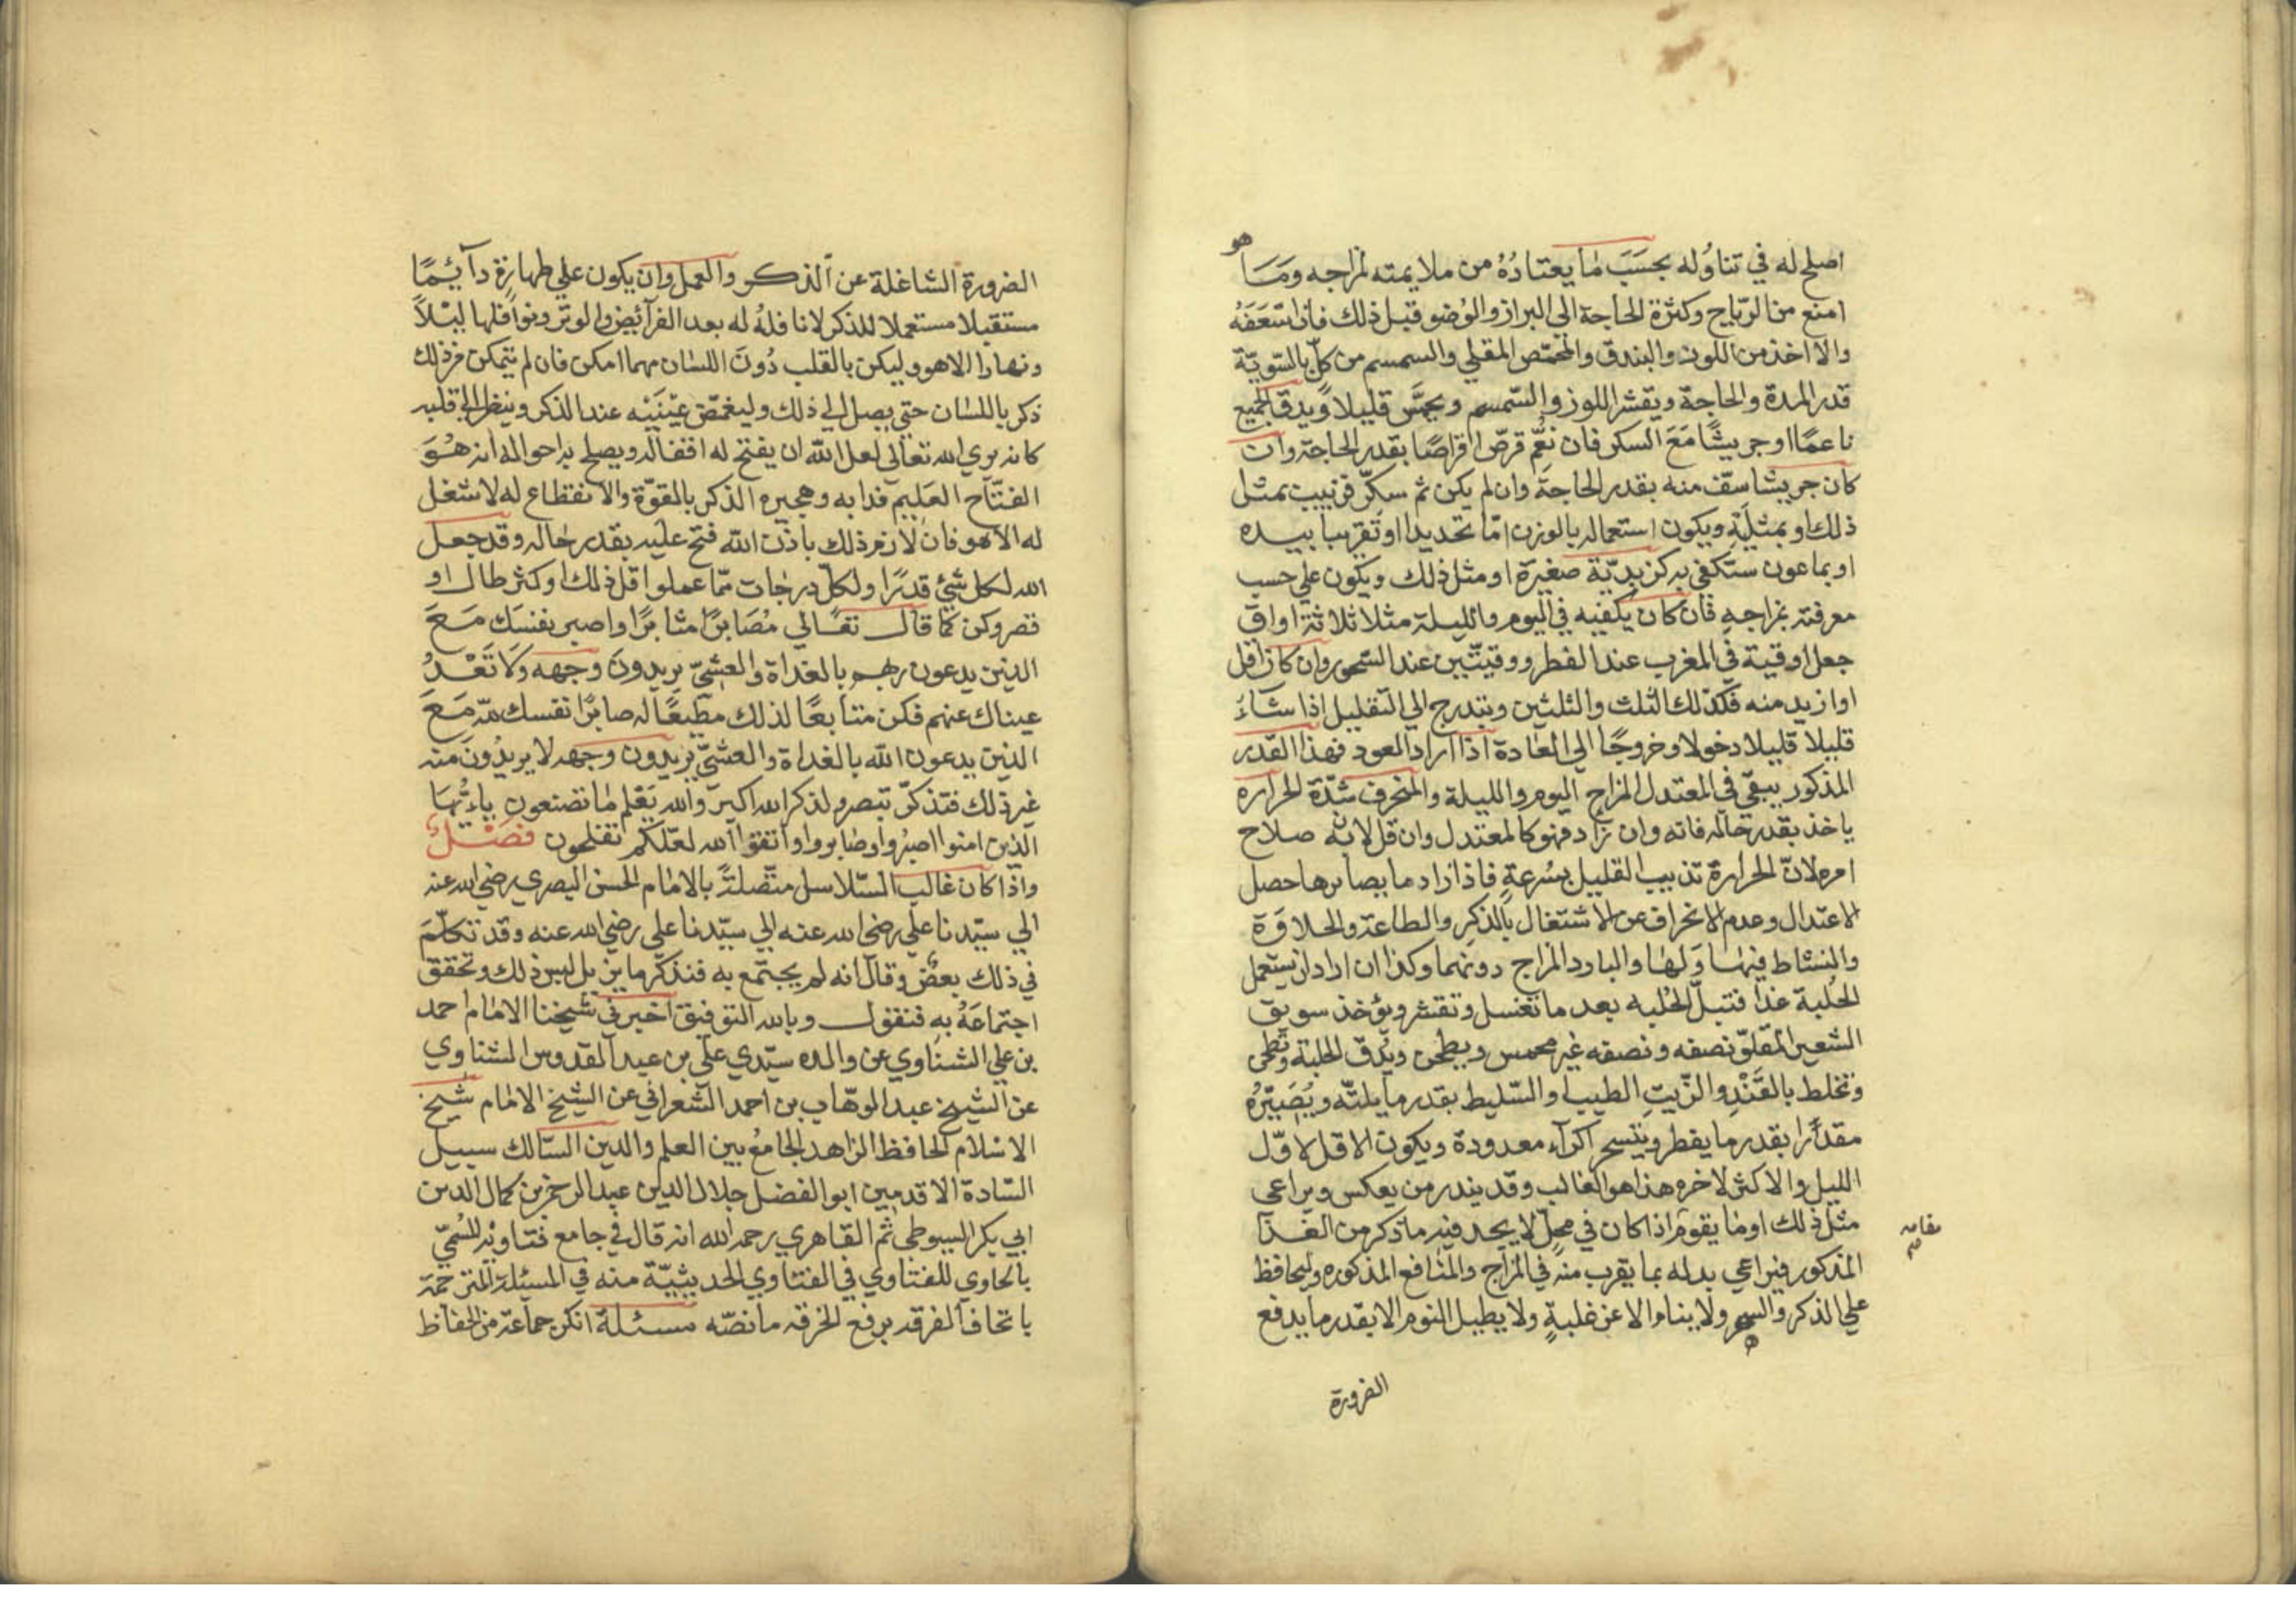 اصلح له في تناوله بحسَبَ ما يعتادُهُ من ملايمته لمزاجه ومَا هو
امنع من الرّياح وكثرة الحاجة الى البراز والوُضو قبل ذلك فان اسْعَفَهُ
والا اخذ من اللوز والبندق والحمّص المقلي والسمسم من كلّ بالسّويّة
قدر المدة والحاجة ويقشر اللوز والسّمسم ويحمَّس قليلاً ويدق الجميع
ناعمًا او جريشًا مَعَ السكر فان نعُم قرصّ اقراصًا بقدر الحاجة وان
كان جريشا سفّ منه بقدر الحاجة وان لم يكن ثم سكرّ فزبيب بمثل
ذلك او بمثليَهِ ويكون استعماله بالوزن امّا تحديدا او تقريبا بيده
او بماعون ستكفي به كزبديّة صغيرة او مثل ذلك ويكون علي حسب
معرفته بمزاجهِ فان كان يكفيه في اليوم والليلة مثلا ثلاثة اواق
جعل اوقية في المغرب عند الفطر ووقيتّين عند السّحور وان كان اقل
او ازيد منه فكذلك الثلث والثلثين ويتدرج الي التقليل اذا شَاءَ
قليلا قليلا دخولا وخروجًا الي العادة اذا اراد العود فهذا القدر
المذكور يبقي في المعتدل المزاج اليوم والليلة والمنحرف شدّة الحراره
ياخذ بقدر حاله فانه وان زاد فهو كالمعتدل وان قل لانه صلاح
امره لانّ الحرارة تذيب القليل بسُرعةٍ فاذا زاد ما يصابرها حصل
الاعتدال وعدم الانحراف عن الاشتغال بالذكر والطاعة والحلاوَة
والنشاط فيها وَلها والبارد المزاج دونهما وكذا ان اراد ان يستعمل
الحُلبة غذا فتبلّ الحُلبه بعد ما تغسل وتقشر ويؤخذ سويق
الشعير المقلوّ نصفه ونصفه غير محمس ويطحن ويُدقّ الحلبة وتطحن
وتخلط بالقَنْدِ والزّيتِ الطيب او السّليط بقدر ما يلتّه ويُصَيّرُهُ
مقدارًا بقدر ما يفطر ويتسحر اكرآء معدودة ويكون الاقل لاوّل
الليل والاكثر لاخره هذا هو الغالب وقد يندر من يعكس ويراعي
مثل ذلك او ما يقوم اذا كان في محلّ لا يجد فيه ما ذكر من الغذآ
مقامه صح
المذكور فيراعي بدله بما يقرب منه في المزاج والمنافع المذكوره وليحافظ
علي الذكر والسهر ولا ينام الا عن غلبةٍ ولا يطيل النوم الا بقدر ما يدفع
الضرورة
الضرورة الشاغلة عن الذكر والعمل وان يكون علي طهارة دآيِمًا
مستقبلا مستعملا للذكر لا نافلهُ له بعد الفرآئِض والوتر ونوافلها ليْلاً
ونهارا الا هو وليكن بالقلب دُونَ اللسان مهما امكن فان لم يتمكن من ذلك
ذكر باللسان حتي يصل الي ذلك وليغمّض عيْنَيْه عند الذكر وينظر الي قلبه
كانه يري الله تعالي لعل الله ان يفتح له اقفاله ويصلح به احواله انه هُوَ
الفتّاح العَليم فدابه وهجيره الذكر بالقوّة والانقطاع له لا شغل
له الا هو فان لازم ذلك باذن الله فتح عليه بقدر حاله وقد جعل
الله لكل شئٍ قدرًا ولكلّ درجات ممّا عملوا قل ذلك او كثر طال او
قصر وكن كما قال تعالي مُصَابرًا مثابرًا واصبر نفسَك مَعَ
الذين يدعون ربهم بالغداة والعشِيّ يريدونَ وجهه وَلا تَعْدُ
عيناك عنهم فكن متابعًا لذلك مطيعًا له صابرًا نفسك لله مَعَ
الذين يدعون الله بالغداة والعشيّ يريدون وجهه لا يريدُونَ منه
غير ذلك فتذكرّ تبصر ولذكر الله اكبر والله يَعْلم ما تصنعون ياءيُّهَا
الّذين امنوا اصبرُوا وصَابروا واتقوا الله لعَلّكم تفلحون فصْلٌ
واذا كان غالب السّلاسل متّصلةً بالامام الحسن البصري رضي الله عنه
الي سيّدنا علي رضي الله عنه الي سيّدنا علي رضي الله عنه وقد تكلّمَ
في ذلك بعضٌ وقال انه لم يجتمع به فنذكر ما يزيل لبس ذلك وتحقق
اجتماعَهُ بِهِ فنقول وبالله التوفيق اخبرني شيخنا الامام احمد
بن علي الشناوي عن والده سيّدي علي بن عبد القدوس الشناوي
عن الشيخ عبد الوهّاب بن احمد الشعراني عن الشيخ الامام شيخ
الاسْلام الحافظ الزاهد الجامعُ بين العلم والدين السّالك سبيل
السّادة الاقدمين ابو الفضل جلال الدين عبد الرحمن بن كمال الدين
ابي بكر السيوطي ثم القاهري رحمه الله انه قال في جامع فتاويْه المُسَمّي
بالحاوي للفتاوي في الفتاوي الحديثيّة منه في المسئلة المترجمة
باتحاف الفرقه برفع الخرقه ما نصّه مسئلة انكر جماعة من الحفاظ